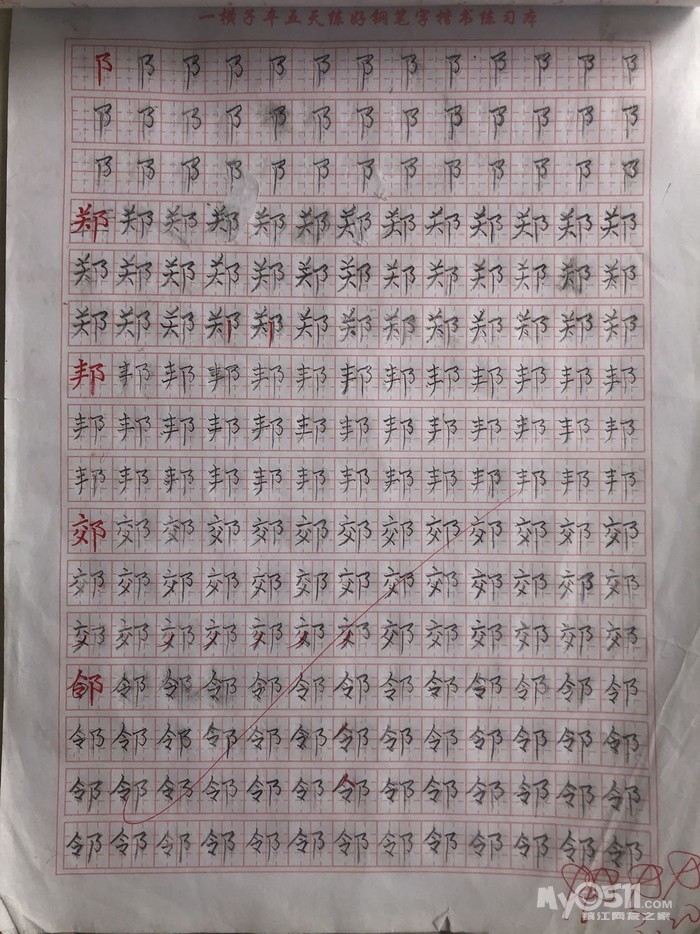 一横子午五天练好钢笔字楷书练习本
阝阝阝阝阝阝阝阝阝阝阝阝阝
阝阝阝阝阝阝阝阝阝阝阝阝阝
阝阝阝阝阝阝阝阝阝阝阝阝阝
郑郑郑郑郑郑郑郑郑郑郑郑郑
郑郑郑郑郑郑郑郑郑郑郑郑郑
郑郑郑郑郑郑郑郑郑郑郑郑郑
邦邦邦邦邦邦邦邦邦邦邦邦邦
邦邦邦邦邦邦邦邦邦邦邦邦邦
邦邦邦邦邦邦邦邦邦邦邦邦邦
郊郊郊郊郊郊郊郊郊郊郊郊郊
郊郊郊郊郊郊郊郊郊郊郊郊郊
郊郊郊郊郊郊郊郊郊郊郊郊郊
邻邻邻邻邻邻邻邻邻邻邻邻邻
邻邻邻邻邻邻邻邻邻邻邻邻邻
邻邻邻邻邻邻邻邻邻邻邻邻邻
邻邻邻邻邻邻邻邻邻邻邻邻邻
My0511.com
镇江网友之家